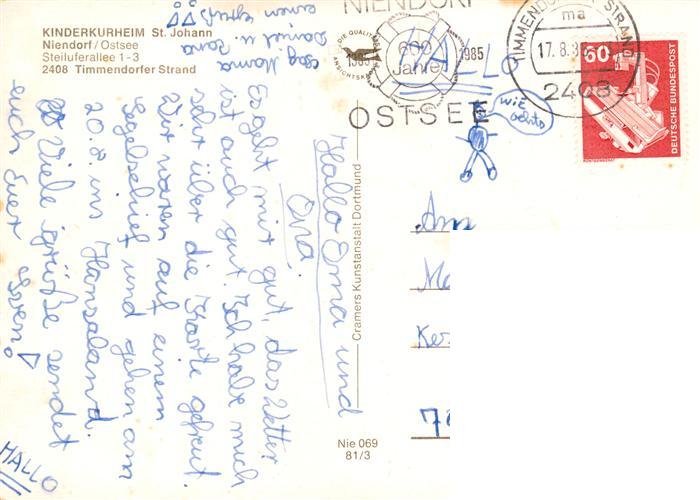 KINDERKURHEIM St. Johann
Niendorf/Ostsee
Steiluferallee 1-3
2408 Timmendorfer Strand
Hallo Oma und
Opa!
Es geht mir gut, das Wetter
ist auch gut. Ich habe mich
sehr über die Karte gefreut.
Wir waren auf einem
Segelschief und gehen am
20.8. ins Hansaland.
Viele grüße sendet
euch Euer Sven!
HALLO
Sag Mama
Daniel u. Jana
einen gruß!!
Cramers Kunstanstalt Dortmund
Nie 069
81/3
NIENDORF
DIE QUALITÄTS
ANSICHTSKARTE
1385
600
Jahre
1985
OSTSEE
HALLO
wie
gehts
TIMMENDORFER STRAND
ma
17.8.
2408
60
DEUTSCHE BUNDESPOST
RÖNTGENGERÄT
An
Ke
7